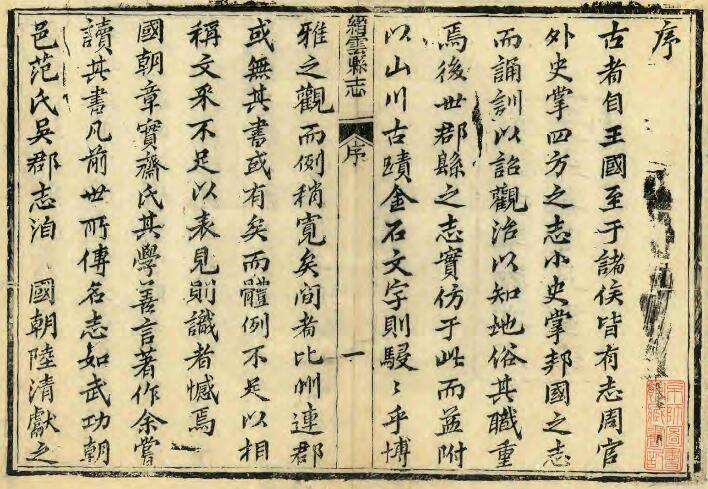 序
古者自王國至于諸侯皆有志周官
外史掌四方之志小史掌邦國之志
而誦訓以詔觀治以知地俗其職重
焉後世郡縣之志實仿于此而益附
以山川古蹟金石文字則駸〻乎博
縉雲縣志
序
一
雅之觀而例稍寬矣間者比州連郡
或無其書或有矣而體例不足以相
稱文采不足以表見則識者憾焉
國朝章實齋氏其學善言著作余嘗
讀其書凡前世所傳名志如武功朝
邑范氏吳郡志洎 國朝陸清獻之